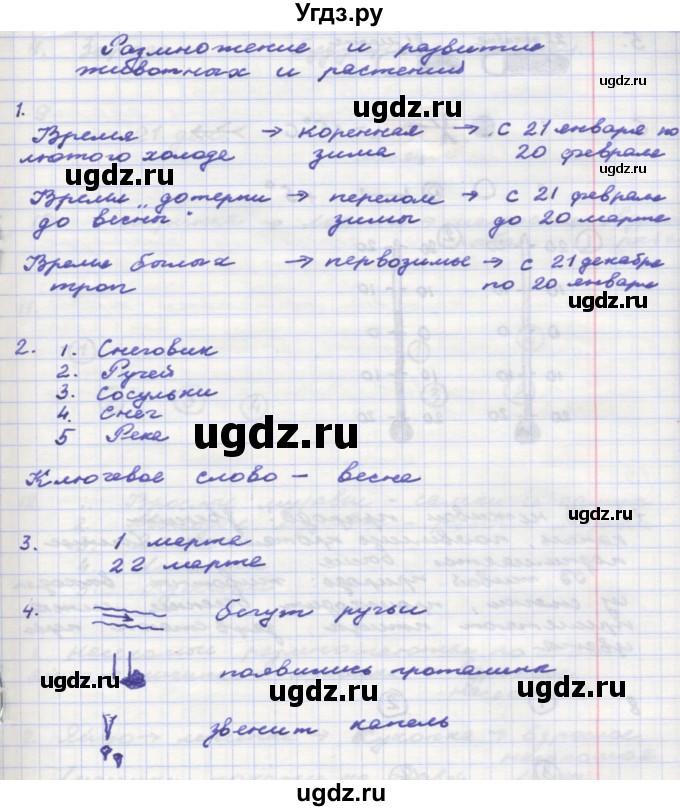 Угдз.ру
Размножение и развитие
животных и растений
ugdz.ru
ugdz.ru
1.
Время → коренная → с 21 января по
лютого холода зима 20 февраля
ugdz.ru
Время „дотерпи → перелом → с 21 февраля
до весны" зимы до 20 марта
Время былых → первозимье → с 21 декабря
троп по 20 января
ugdz.ru
2. 1. Снеговик
2. Ручей
3. Сосульки
4. Снег
5 Река
ugdz.ru
Ключевое слово – весна
ugdz.ru
3. 1 марта
22 марта
4. бегут ручьи
появились проталинк
ugdz.ru
ugdz.ru
ugdz.ru
звенит капель
ugdz.ru